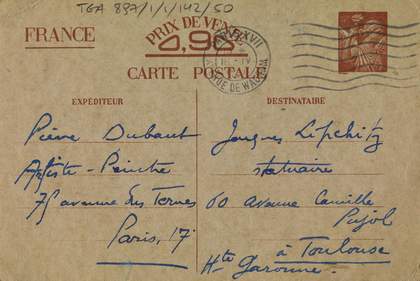 TGA 897/1/1/142/50
FRANCE
PRIX DE VENTE
0,90
CARTE POSTALE
EXPÉDITEUR
DESTINATAIRE
Pierre Dubaut
Artiste-Peintre
75 avenue des Ternes
Paris, 17
Jacques Lipchitz
statuaire
60 Avenue Camille
Pujol
à Toulouse
Hte Garonne.